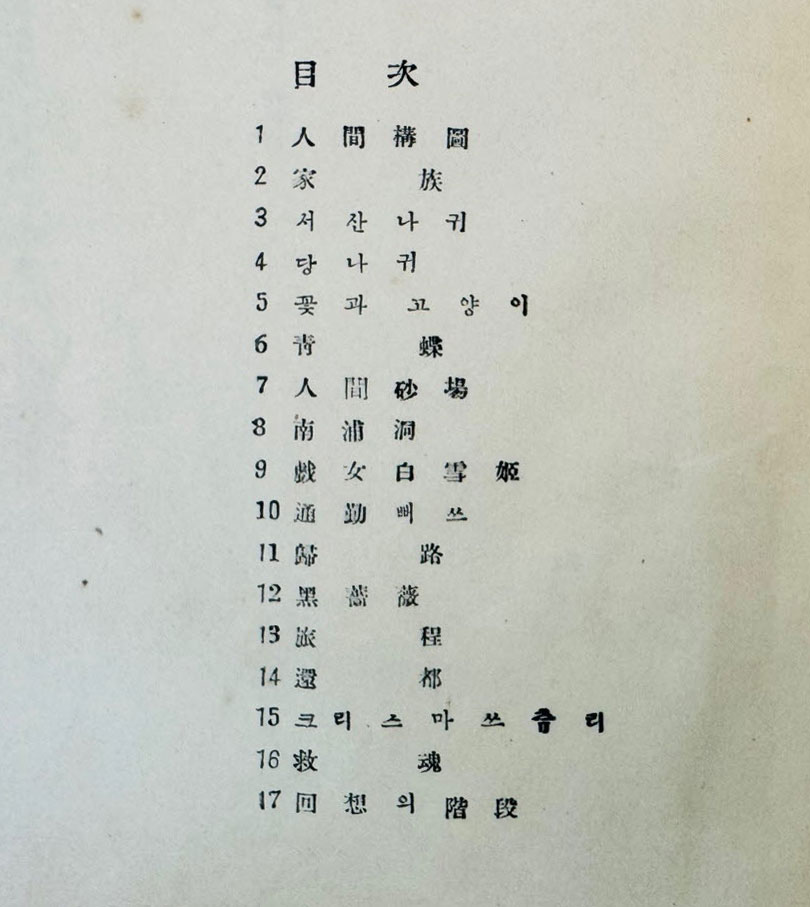 目次
1 人間構圖
2 家族
3 서산나귀
4 당나귀
5 꽃과 고양이
6 青蝶
7 人間砂場
8 南浦洞
9 戱女白雪姬
10 通勤뻐쓰
11 歸路
12 黑薔薇
13 旅程
14 還都
15 크리스마쓰츄리
16 救魂
17 回想의階段